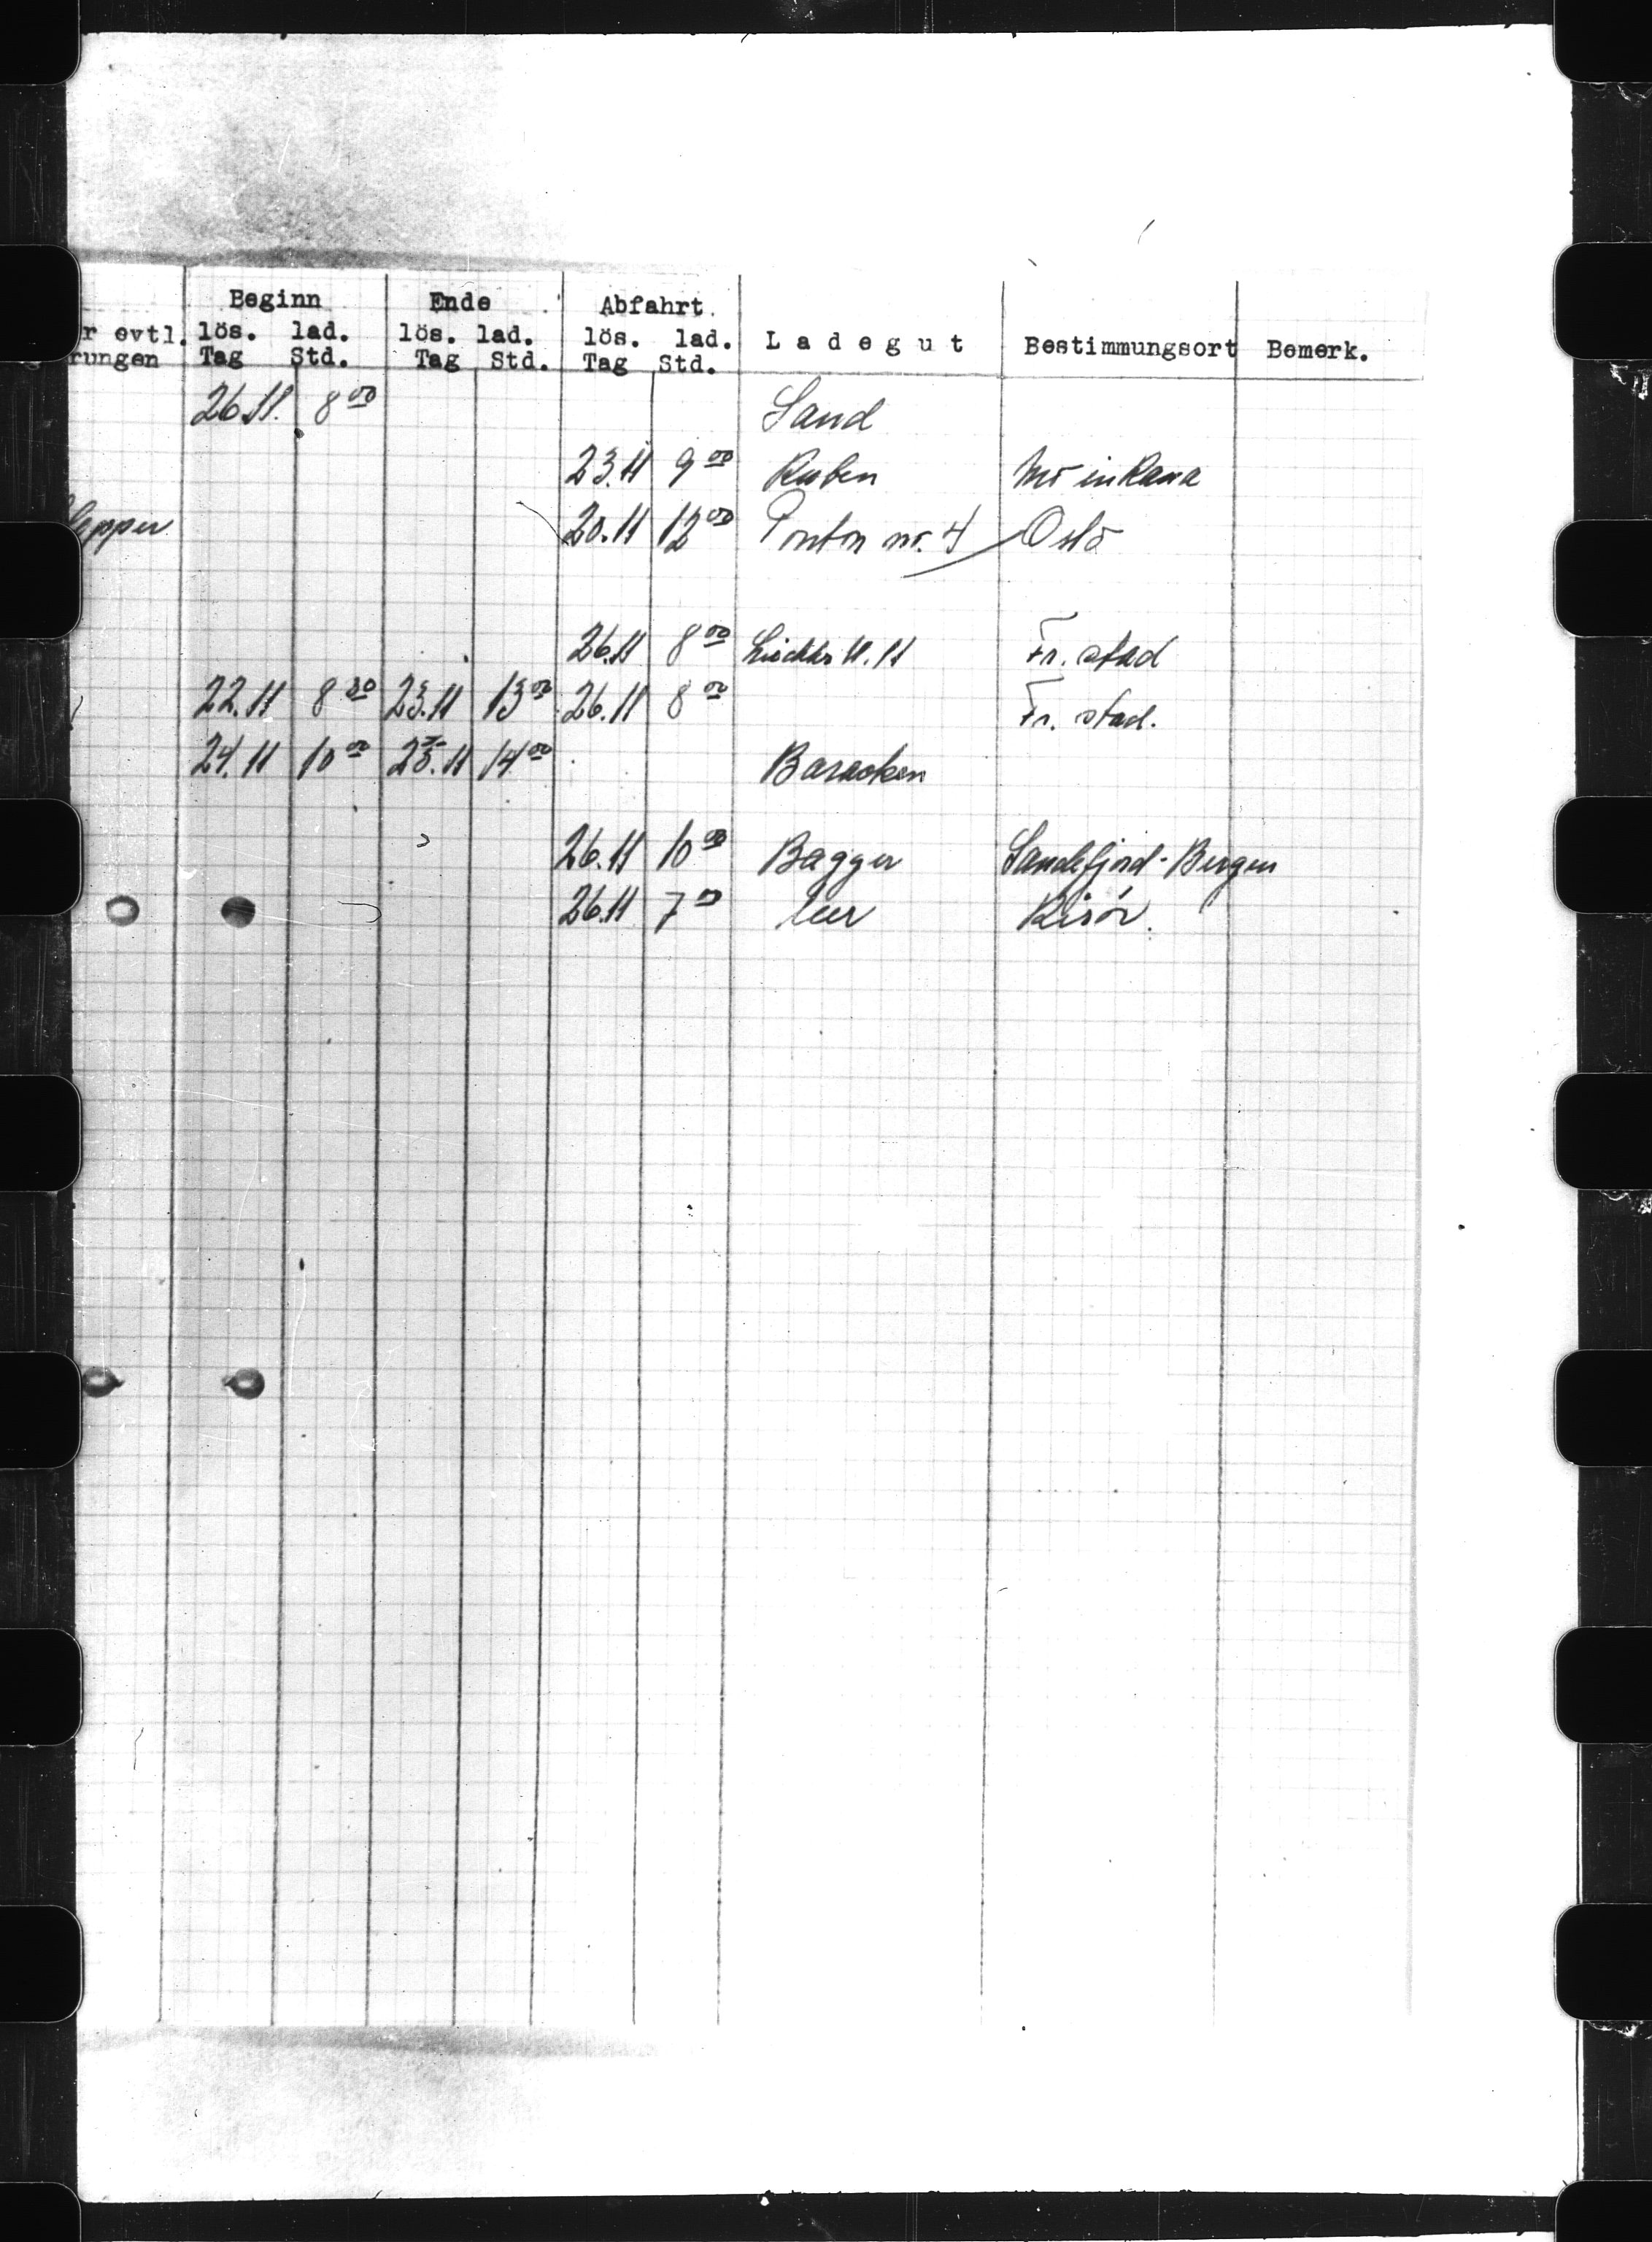 Beginn Ende Abfahrt
r evtl. lös. lad. lös. lad. lös. lad. L a d e g u t Bestimmungsort Bemerk.
rungen Tag Std. Tag Std. Tag Std.
26.11. 8 00 Sand
23.11 9 00 Ruben Mo in Rana
lepper 20.11 12 00 Ponton nr. 4 Oslo
26.11 8 00 11.11 Fr. stad
22.11 8 00 23.11 13 00 26.11 8 00 Fr. stad.
24.11 10 00 25.11 14 00 Baracken
26.11 10 00 Bagger Sandefjord - Bergen
26.11 7 00 leer Risör.